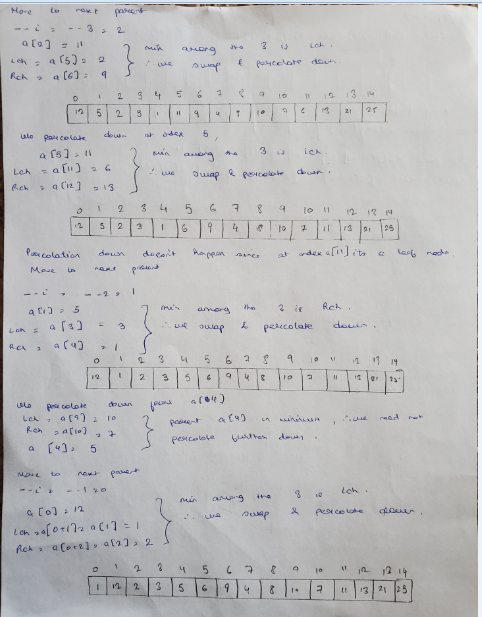 Move to next parent
--i = --3 = 2
a[2] = 11
Lch = a[5] = 2
Rch = a[6] = 9
min among the 3 is Lch.
∴ we swap & percolate down.
0 1 2 3 4 5 6 7 8 9 10 11 12 13 14
12 5 2 3 1 11 9 4 8 10 7 6 13 21 25
We percolate down at index 5,
a[5] = 11
Lch = a[11] = 6
Rch = a[12] = 13
min among the 3 is Lch.
∴ we swap & percolate down.
0 1 2 3 4 5 6 7 8 9 10 11 12 13 14
12 5 2 3 1 6 9 4 8 10 7 11 13 21 25
Percolation down doesn't happen since at index a[11] its a leaf node.
Move to next parent
--i = --2 = 1
a[1] = 5
Lch = a[3] = 3
Rch = a[4] = 1
min among the 3 is Rch.
∴ we swap & percolate down.
0 1 2 3 4 5 6 7 8 9 10 11 12 13 14
12 1 2 3 5 6 9 4 8 10 7 11 13 21 25
We percolate down from a[4]
Lch = a[9] = 10
Rch = a[10] = 7
a[4] = 5
parent a[4] is minimum, ∴ we need not
percolate further down.
Move to next parent
--i = --1 = 0
a[0] = 12
Lch = a[0+1] = a[1] = 1
Rch = a[0+2] = a[2] = 2
min among the 3 is Lch.
∴ we swap & percolate down.
0 1 2 3 4 5 6 7 8 9 10 11 12 13 14
1 12 2 3 5 6 9 4 8 10 7 11 13 21 25